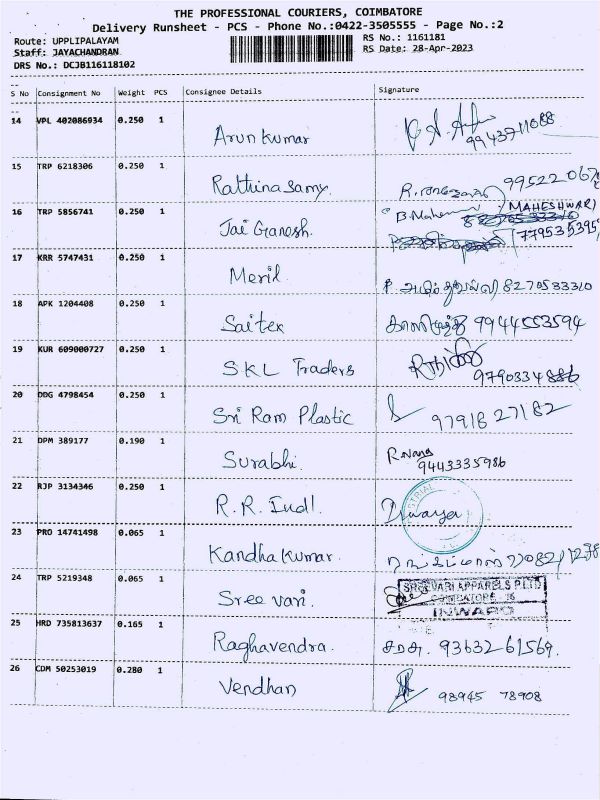 THE PROFESSIONAL COURIERS, COIMBATORE
Delivery Runsheet - PCS - Phone No.:0422-3505555 - Page No.:2
Route: UPPLIPALAYAM RS No.: 1161181
Staff: JAYACHANDRAN RS Date: 28-Apr-2023
DRS No.: DCJB116118102
S No Consignment No Weight PCS Consignee Details Signature
14 VPL 402086934 0.250 1 Arunkumar
15 TRP 6218306 0.250 1 Rathinasamy
16 TRP 5856741 0.250 1 Jai Ganesh. (MAHESHWARI)
17 KRR 5747431 0.250 1 Meril 8270533310
18 APK 1204408 0.250 1 Saitex 9944553594
19 KUR 609000727 0.250 1 SKL Traders
20 DDG 4798454 0.250 1 Sri Ram Plastic 9791827182
21 DPM 389177 0.190 1 Surabhi. 9443335986
22 RJP 3134346 0.250 1 R.R. Indl.
23 PRO 14741498 0.065 1 Kandhakumar.
24 TRP 5219348 0.065 1 Sree vari. SREEVARI APPARELS P LTD
COIMBATORE - 16
INWARD
25 HRD 735813637 0.165 1 Raghavendra. 93632 61569.
26 CDM 50253019 0.280 1 Vendhan 98945 78908